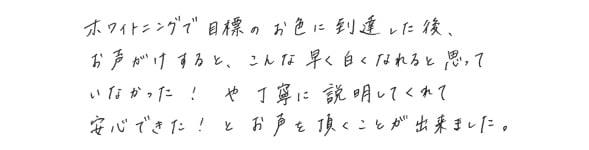 ホワイトニングで目標のお色に到達した後、
お声がけすると、こんな早く白くなれると思って
いなかった！や丁寧に説明してくれて
安心できた！とお声を頂くことが出来ました。